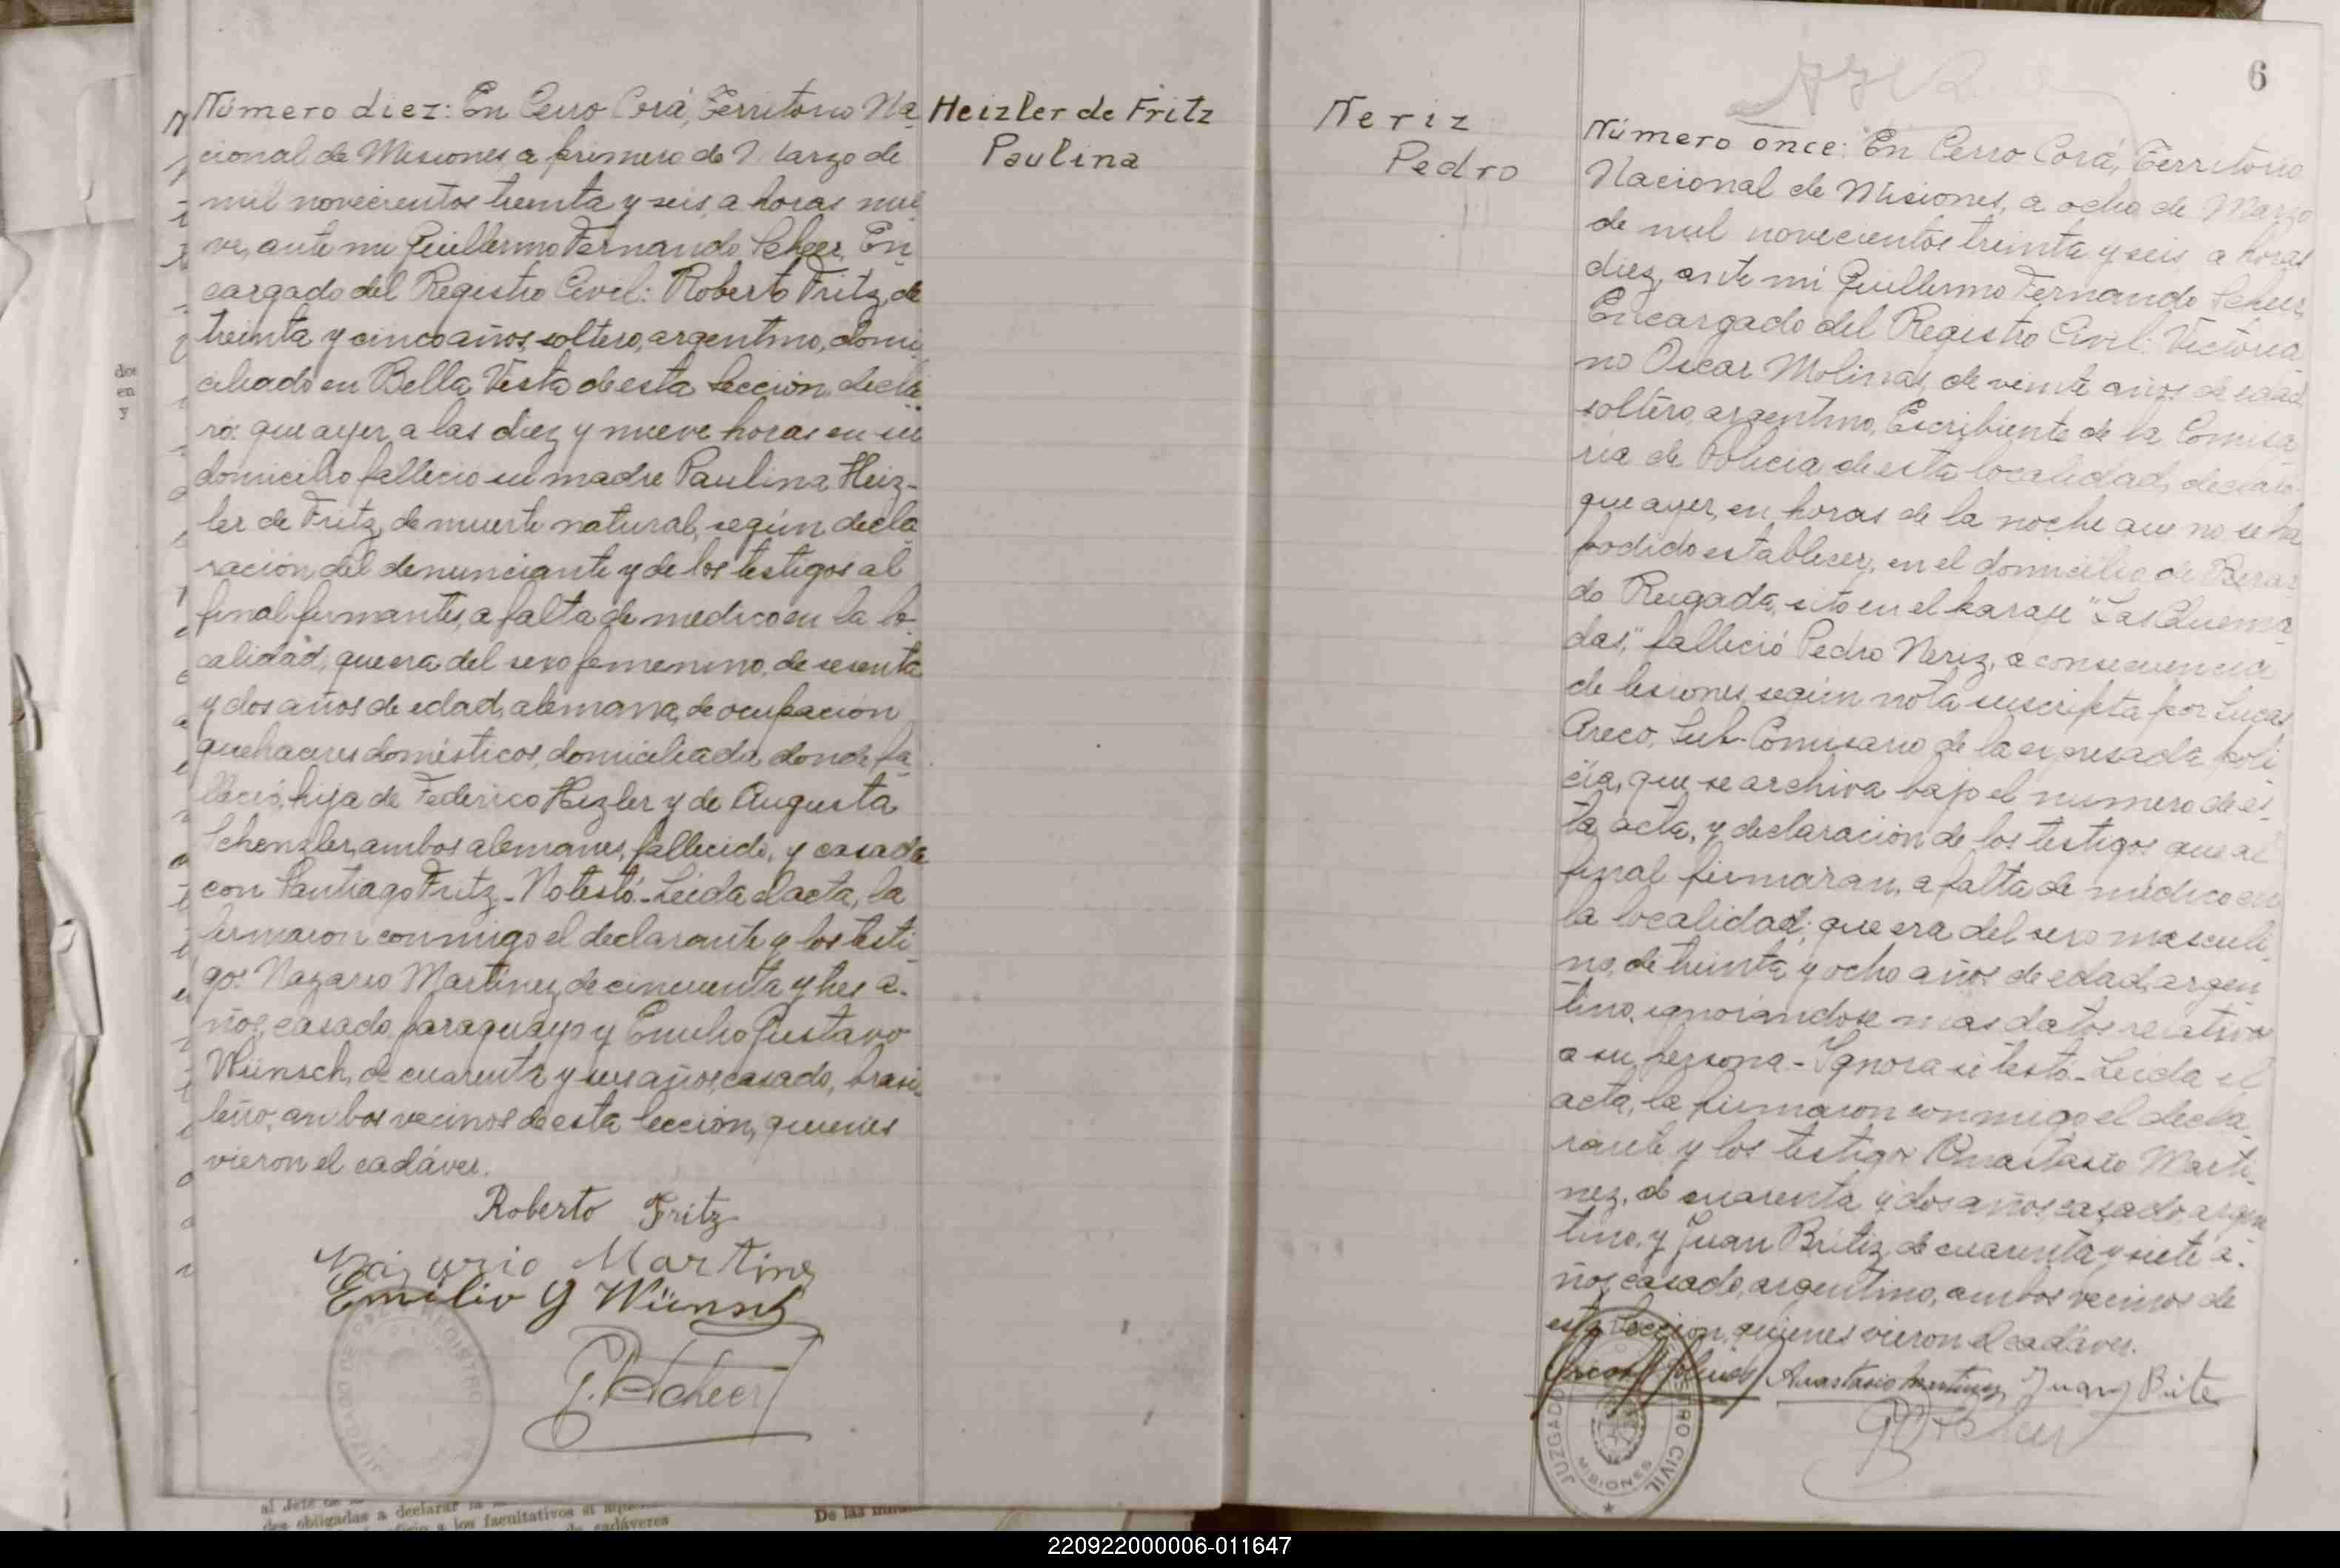 Número diez: En Cerro Corá, Territorio Na-
cional de Misiones, a primero de Marzo de
mil novecientos treinta y seis, a horas nue
ve, ante mi Guillermo Fernando Scheer, En-
cargado del Registro Civil: Roberto Fritz, de
treinta y cinco años, soltero, argentino, domi
ciliado en Bella Vista de esta Sección, decla
ró: que ayer, a las diez y nueve horas en su
domicilio falleció su madre Paulina Heiz-
ler de Fritz, de muerte natural, según decla
ración del denunciante y de los testigos al
final firmantes, a falta de médico en la lo-
calidad, que era del sexo femenino, de sesenta
y dos años de edad, alemana, de ocupación
quehaceres domésticos, domiciliada donde fa-
lleció, hija de Federico Hezler y de Augusta
Schenzler, ambos alemanes, fallecido, y casada
con Santiago Fritz - No testó.- Leida el acta, la
firmaron conmigo el declarante y los testi
gos Nazario Martinez, de cincuenta y tres a-
ños, casado, paraguayo y Emilio Gustavo
Wünsch, de cuarenta y seis años, casado, brasi-
leño, ambos vecinos de esta Sección, quienes
vieron el cadáver.
Roberto Fritz
Martinez
Emilio G Wünsch
G. F. Scheer
Heizler de Fritz
Paulina
Neriz
Pedro
6
Número once: En Cerro Corá, Territorio
Nacional de Misiones, a ocho de Marzo
de mil novecientos treinta y seis, a horas
diez, ante mi Guillermo Fernando Scheer,
Encargado del Registro Civil: Victoria
no Oscar Molinas, de veinte años de edad,
soltero, argentino, Escribiente de la Comisa
ría de Policia de esta localidad, declaró:
que ayer, en horas de la noche que no se ha
podido establecer, en el domicilio de
do sito en el paraje "Las Quema
das", falleció Pedro Neriz, a consecuencia
de lesiones, según nota suscripta por Lucas
Areco, Sub-Comisario de la expresada poli
cía, que se archiva bajo el numero de es-
ta acta, y declaración de los testigos que al
final firmaran, a falta de médico en
la localidad; que era del sexo masculi-
no, de treinta y ocho años de edad, argen
tino, ignorándose mas datos relativos
a su persona - Ignora si testó - Leida el
acta, la firmaron conmigo el decla
rante y los testigos Anastasio Marti-
nez, de cuarenta y dos años, casado, argen
tino, y Juan Britez, de cuarenta y siete a-
ños, casado, argentino, ambos vecinos de
esta Sección, quienes vieron el cadáver.
Oscar Molinas Anastasio Martinez Juan Brite
G F Scheer
JUZGADO
REGISTRO CIVIL
MISIONES
dos
en
y
des obligadas a declarar la
a los facultativos si
de cadáveres
De las
220922000006-011647